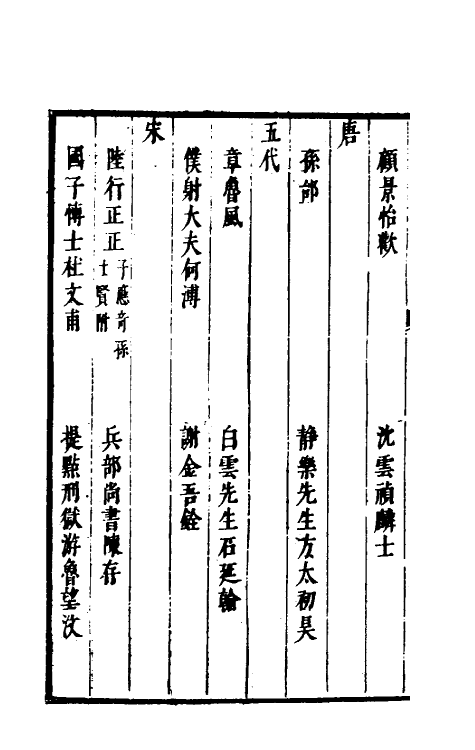 顧景怡歡　沈雲禎麟士
唐
孫郃　靜樂先生方太初昊
五代
章魯風　白雲先生石延翰
僕射大夫何溥　謝金吾銓
宋
陸行正正子應奇孫士賢附　兵部尚書陳存
國子博士杜文甫　提點刑獄游魯望汶